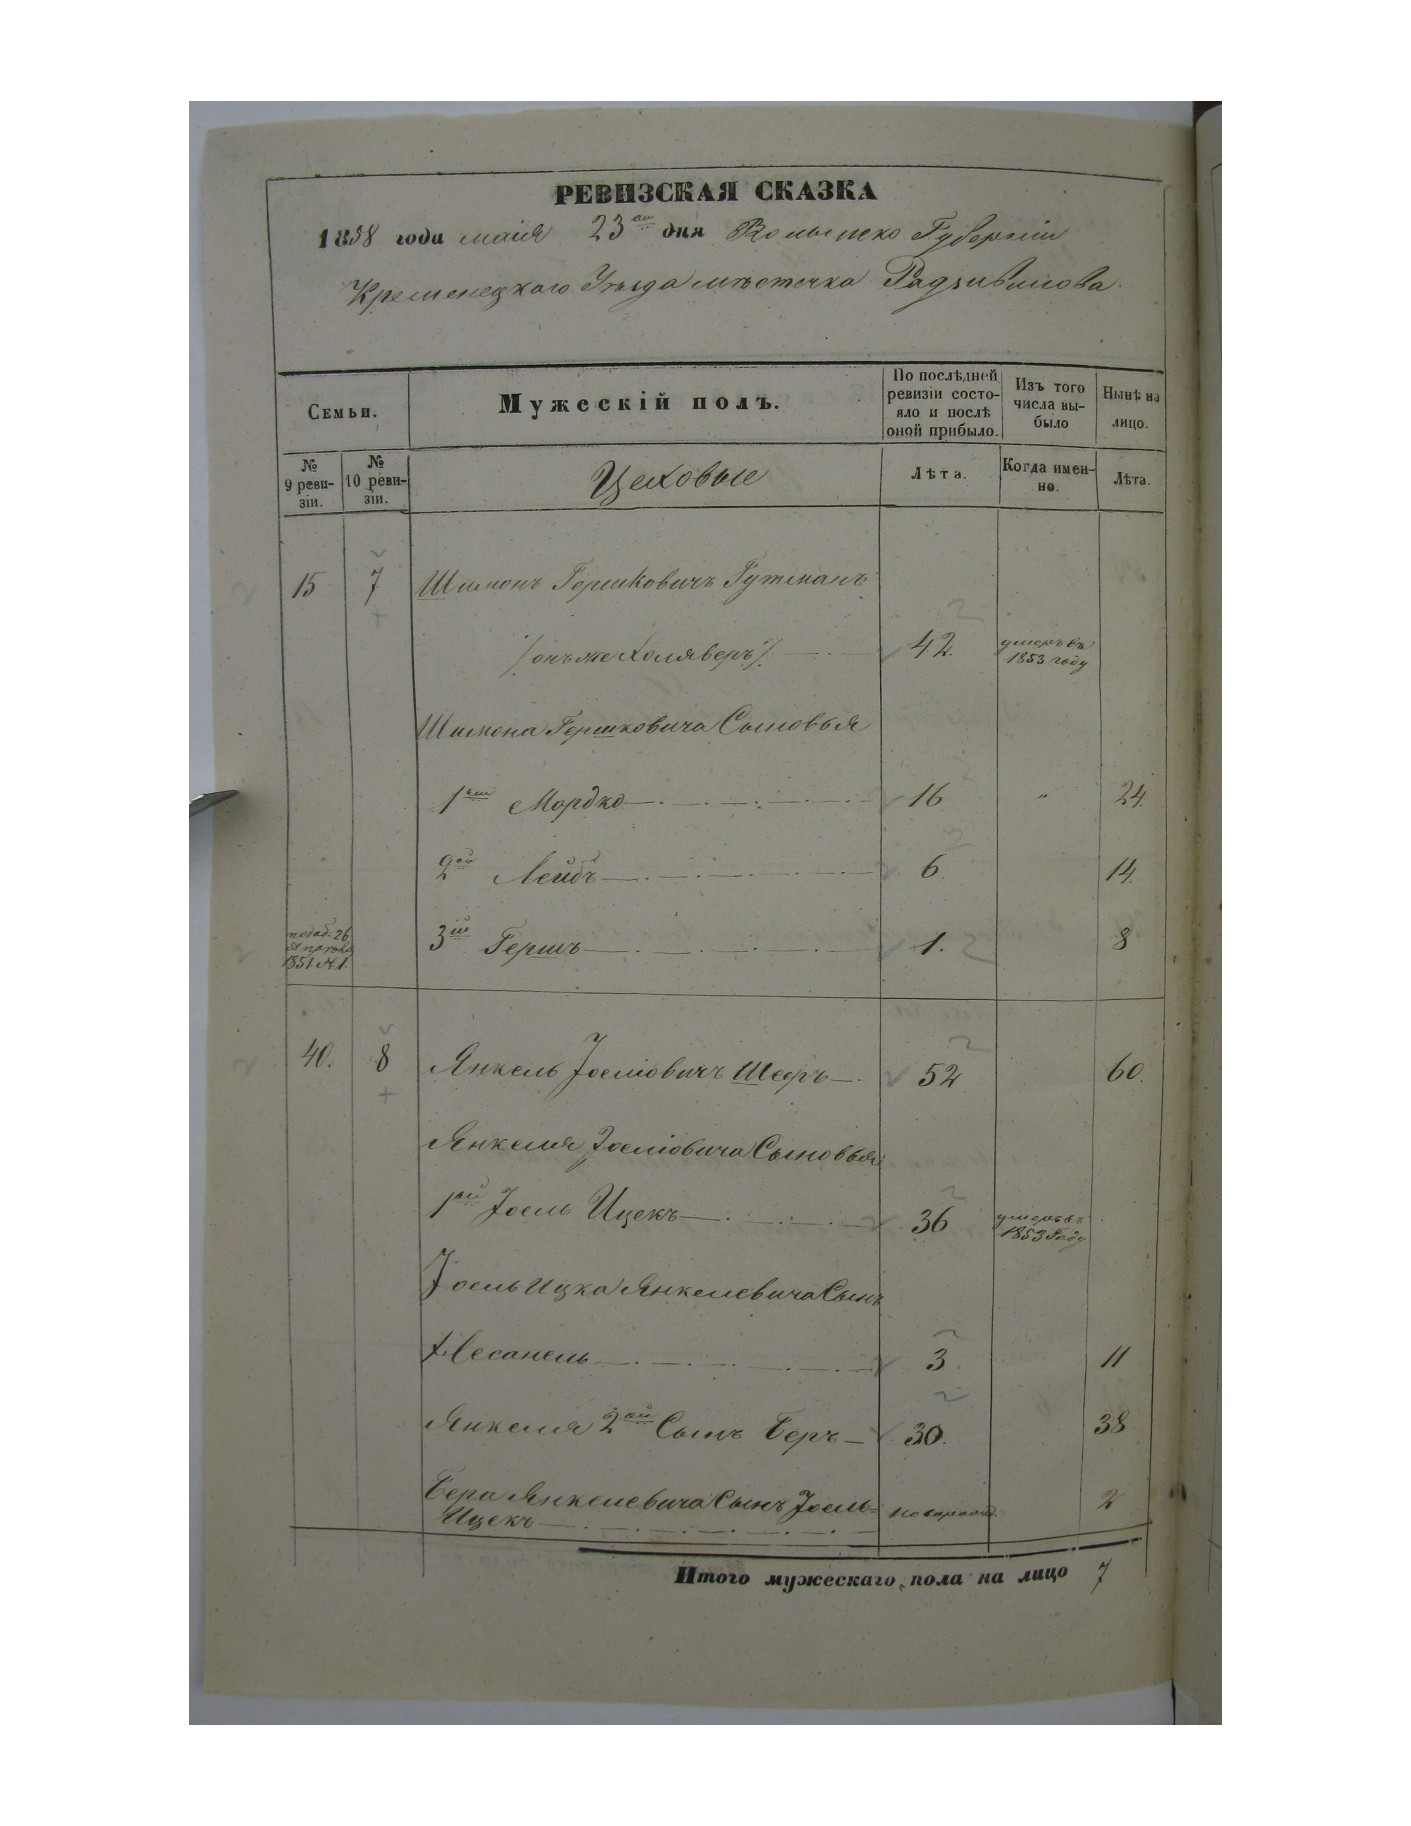 РЕВИЗСКАЯ СКАЗКА
1858 года маія 23го дня Волынско Губерніи
Кременецкаго Уѣзда мѣстечка Радзивилова.
Семьи.
Мужескій полъ.
По послѣдней ревизіи состо-
яло и послѣ
оной прибыло.
Изъ того
числа вы-
было
Нынѣ на
лицо.
№
9 реви-
зіи.
№
10 реви-
зіи.
Цеховые
Лѣта.
Когда имен-
но.
Лѣта.
15 7 Шимонъ Гершковичъ Гутманъ
/онъ же Холяверъ/ 42. умеръ въ
1853 году
Шимона Гершковича Сыновья
1ый Мордко 16 " 24.
2ой Лейбъ 6. 14.
3ій Гершъ 1. 8
26
1851 №1.
40. 8 Янкель Іосіовичъ Шеръ 52 60.
Янкеля Іосіовича Сыновья
1ый Іосль Ицекъ 36 умеръ въ
1853 году
Іосль Ицка Янкелевича Сынъ
Несанель 3. 11
Янкеля 2ой Сынъ Беръ 30. 38
Бера Янкелевича Сынъ Іосль=
Ицекъ 2
Итого мужескаго пола на лицо 7